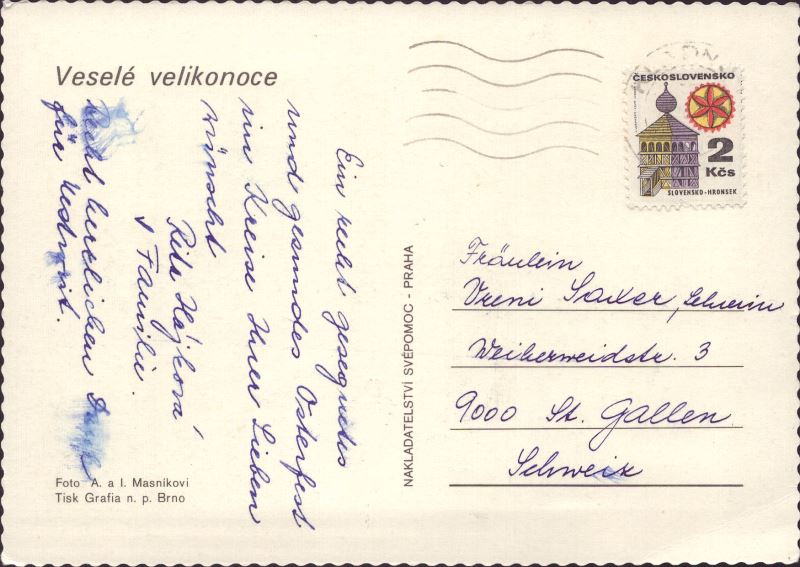 Veselé velikonoce
Ein recht gesegnetes
und gesundes Osterfest
im Kreise Ihrer Lieben
wünscht
Rita Hájková
u Familie.
Recht herzlichen Dank
für
Foto A. a I. Masníkovi
Tisk Grafia n. p. Brno
NAKLADATELSTVÍ SVÉPOMOC - PRAHA
ČESKOSLOVENSKO
2
Kčs
SLOVENSKO-HRONSEK
Fräulein
Vreni Saxer,
Weiherweidstr. 3
9000 St. Gallen
Schweiz